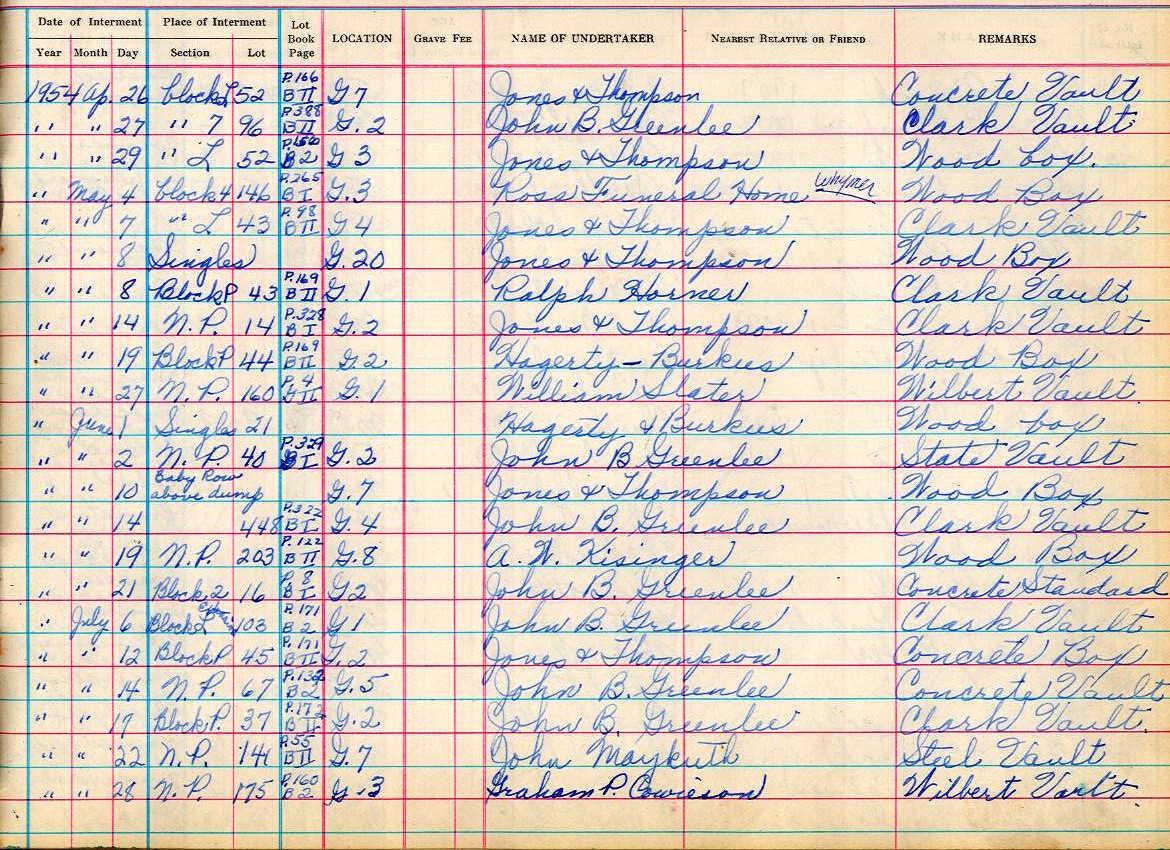 Date of Interment Place of Interment Lot Book Page LOCATION GRAVE FEE NAME OF UNDERTAKER NEAREST RELATIVE OR FRIEND REMARKS
Year Month Day Section Lot
1954 Ap. 26 block L 52 P.166 B II G 7 Jones & Thompson Concrete Vault
" " 27 " 7 96 P.388 B II G. 2 John B. Greenlee Clark Vault
" " 29 " L 52 B 2 G 3 Jones & Thompson Wood box.
" May 4 block 4 146 P.265 B I G.3 Ross Funeral Home Whymer Wood Box
" " 7 " L 43 P.98 B II G 4 Jones & Thompson Clark Vault
" " 8 Singles G. 20 Jones & Thompson Wood Box
" " 8 Block P 43 P.169 B II G. 1 Ralph Horner Clark Vault
" " 14 N.P. 14 P.328 B I G. 2 Jones & Thompson Clark Vault
" " 19 Block P 44 P.169 B II G. 2 Hagerty - Burkus Wood Box
" " 27 N.P. 160 P. 4 II G. 1 William Slater Wilbert Vault
" June 1 Singles 21 Hagerty & Burkus Wood box
" " 2 N.P. 40 P.329 B I G. 2 John B Greenlee State Vault
" " 10 Baby Row above dump G. 7 Jones & Thompson Wood Box
" " 14 448 P.322 B I G. 4 John B. Greenlee Clark Vault
" " 19 N.P. 203 P.122 B II G. 8 A. W. Kisinger Wood Box
" " 21 Block 2 16 P. 8 B I G 2 John B. Greenlee Concrete Standard
" July 6 Block L 103 P.171 B 2 G 1 John B. Greenlee Clark Vault
" " 12 Block P 45 P.171 B II G. 2 Jones & Thompson Concrete Box
" " 14 N.P. 67 P.132 B 2 G. 5 John B. Greenlee Concrete Vault
" " 17 Block P. 37 P.172 B II G. 2 John B. Greenlee Clark Vault
" " 22 N.P. 141 P.55 B II G. 7 John Maykuth Steel Vault
" " 28 N.P. 175 P.160 B 2 G 3 Graham P. Cowieson Wilbert Vault.